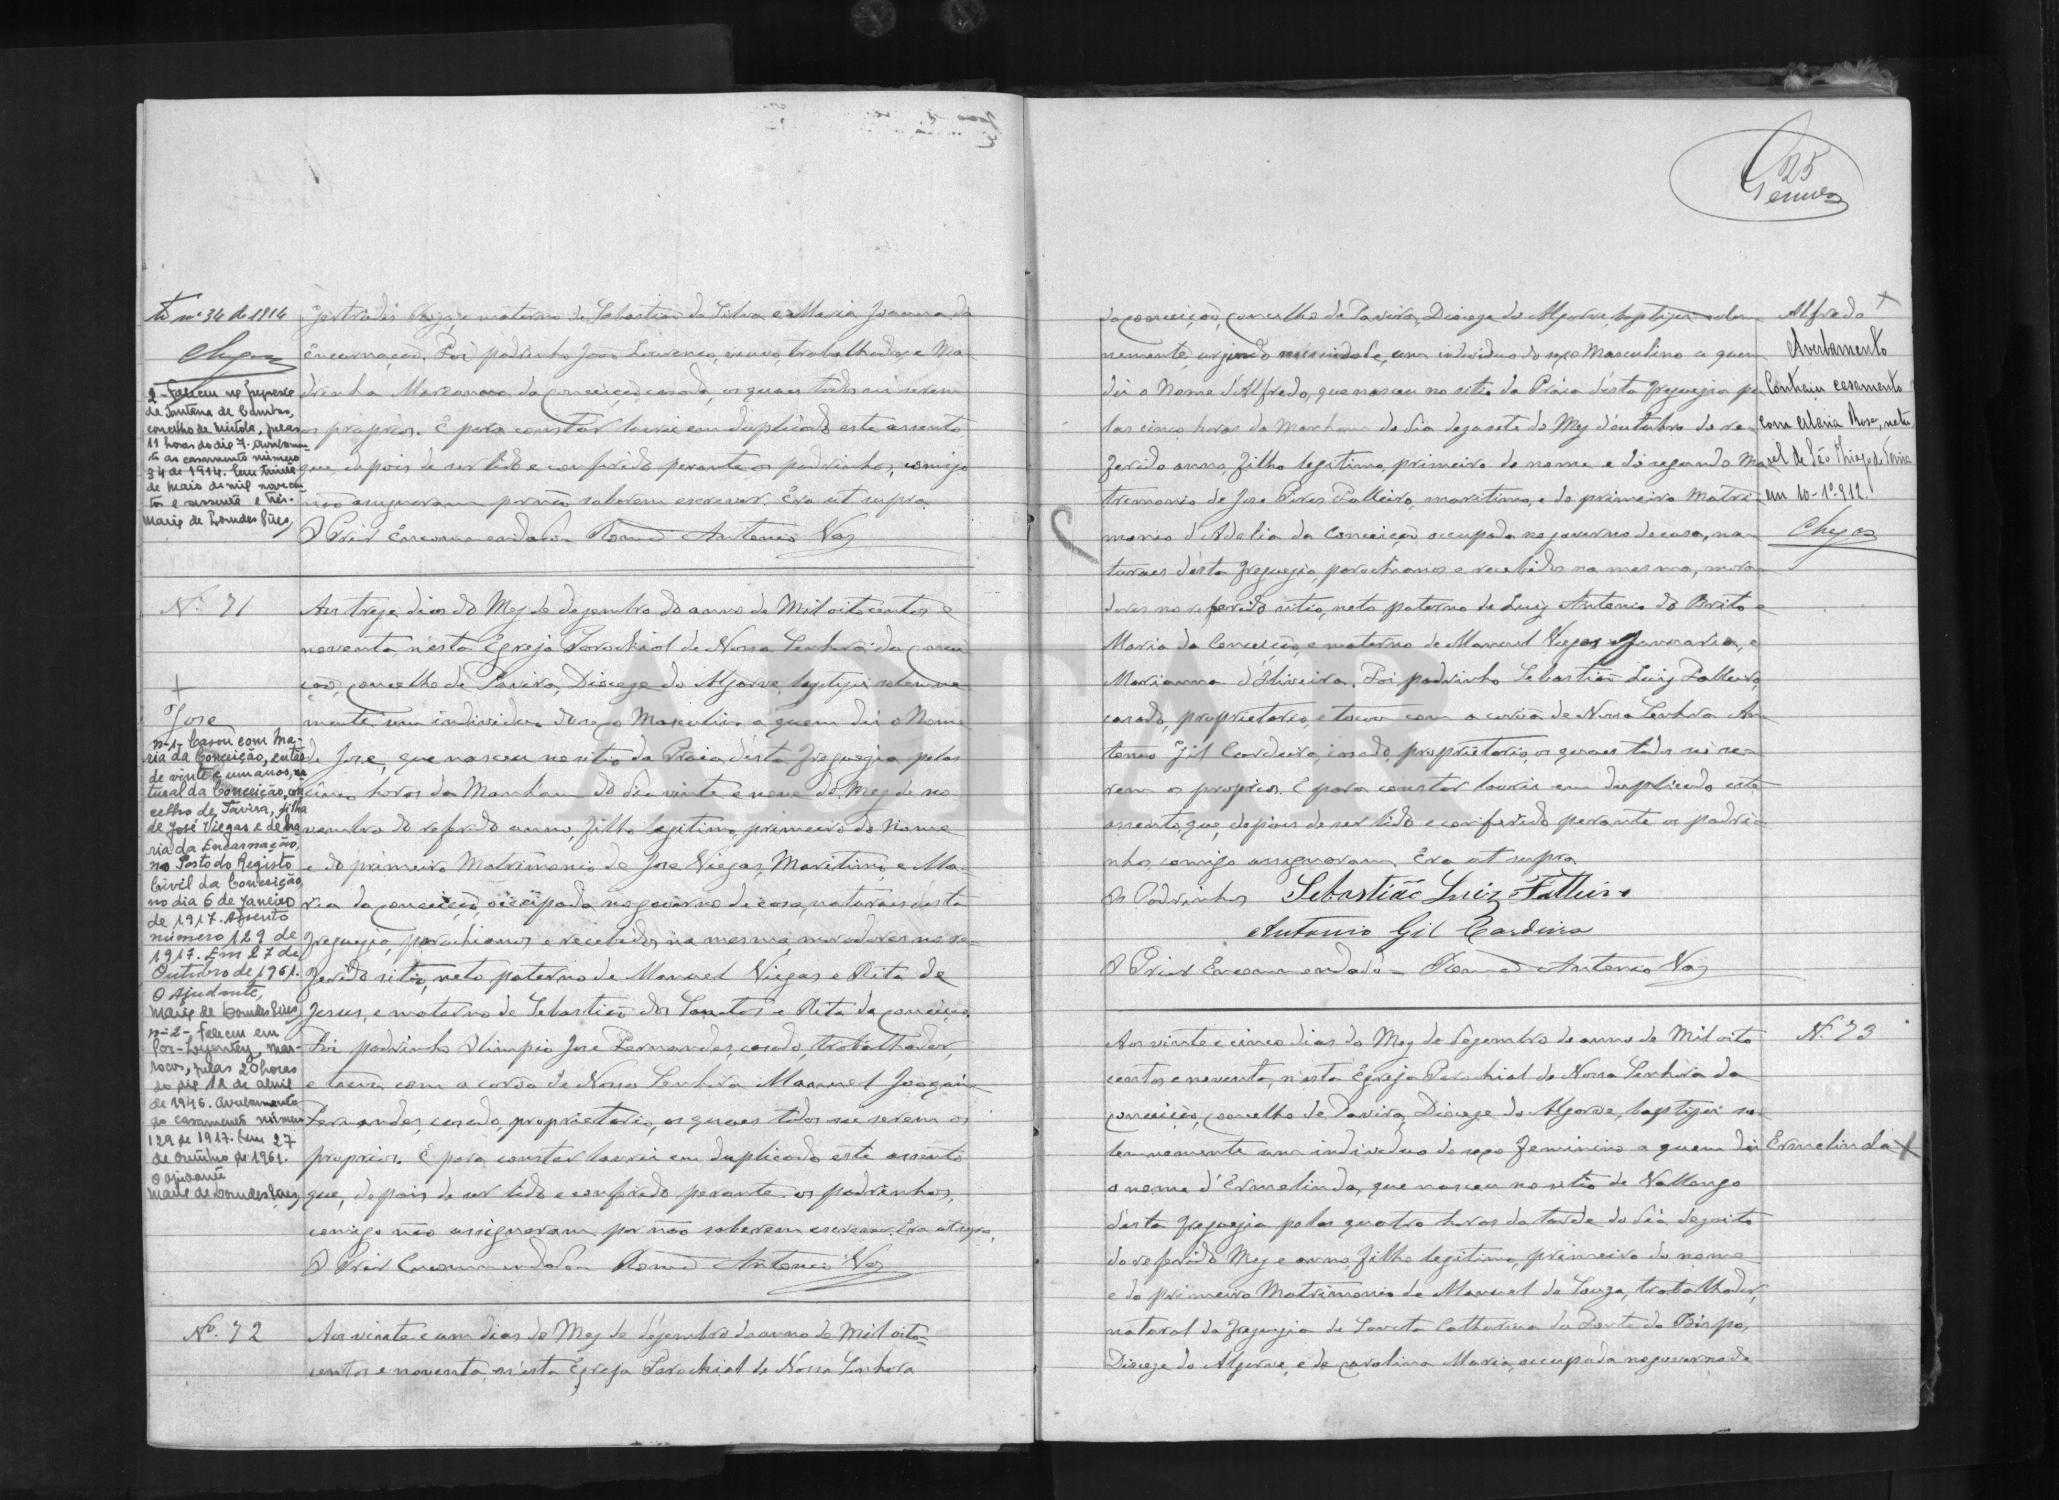 25
Gertrudes Braz, e materno de Sebastião da Silva e Maria Joanna da
Encarnação. Foi padrinho João Lourenço, viuvo, trabalhador, e Ma-
drinha Marianna da Conceição casada, os quaes todos sei serem
os proprios. E para constar lavrei em duplicado este assento,
que depois de ser lido e conferido perante os padrinhos, comigo
não assignaram por não saberem escrever. Era ut supra.
O Prior Encommendado Thomé Antonio Vaz
to nº 34 de 1914
Chagas
2 - Faleceu na freguesia
de Santana de Cambas,
concelho de Mértola, pelas
11 horas do dia 7. Averbamen-
to ao casamento número
34 de 1914. Em trinta
de Maio de mil novecen-
tos e sessenta e três.
Maria de Lourdes Pires
Nº 71
Aos treze dias do Mez de Dezembro do anno de Mil oito centos e
noventa, n'esta Egreja Parochial de Nossa Senhora da Concei-
ção, concelho de Tavira, Diocese do Algarve, baptizei solemne-
mente um individuo do sexo Masculino a quem dei o Nome
de José, que nasceu no sitio da Praia d'esta freguezia pelas
cinco horas da Manhan do dia vinte e nove do Mez de No-
vembro do referido anno, filho legitimo, primeiro do Nome
e do primeiro Matrimonio de José Viegas, Maritimo, e Ma-
ria da Conceição, occupada no governo de casa, naturaes d'esta
freguezia, parochianos e recebidos na mesma, moradores no re-
ferido sitio, neto paterno de Manuel Viegas e Rita de
Jesus, e materno de Sebastião dos Santos e Rita da Conceição.
Foi padrinho Olimpio José Fernandes, casado, trabalhador,
e tocou com a corôa de Nossa Senhora Manuel Joaquim
Fernandes, casado, proprietario, os quaes todos sei serem os
proprios. E para constar lavrei em duplicado este assento
que, depois de ser lido e conferido perante os padrinhos,
comigo não assignaram por não saberem escrever. Era ut supra.
O Prior Encommendado Thomé Antonio Vaz
José
nº 1 - Casou com Ma-
ria da Conceição, então
de vinte e um anos, na-
tural da Conceição, con-
celho de Tavira, filha
de José Viegas e de Ma-
ria da Encarnação,
no Posto do Registo
Civil da Conceição,
no dia 6 de Janeiro
de 1917. Assento
número 129 de
1917. Em 27 de
Outubro de 1961.
O Ajudante,
Maria de Lourdes Pires
nº 2 - Faleceu em
Por-Lyautey, Mar-
rocos, pelas 20 horas
do dia 12 de abril
de 1946. Averbamento
ao casamento número
129 de 1917. Em 27
de Outubro de 1961.
O Ajudante
Maria de Lourdes Pires
Nº 72
Aos vinte e um dias do Mez de Dezembro do anno de Mil oito-
centos e noventa, n'esta Egreja Parochial de Nossa Senhora
da Conceição, concelho de Tavira, Diocese do Algarve, baptizei solem-
nemente, urgindo necessidade, um individuo do sexo Masculino a quem
dei o Nome d'Alfredo, que nasceu no sitio da Praia d'esta freguezia pe-
las cinco horas da Manhan do dia dezasete do Mez d'outubro do re-
ferido anno, filho legitimo, primeiro do nome e do segundo Ma-
trimonio de José Pires Falleiro, maritimo, e do primeiro Matri-
monio d'Adelia da Conceição occupada no governo de casa, na-
turaes d'esta freguezia, parochianos e recebidos na mesma, mora-
dores no referido sitio, neto paterno de Luiz Antonio do Brito e
Maria da Conceição, e materno de Manuel Viegas Januario, e
Marianna d'Oliveira. Foi padrinho Sebastião Luiz Falleiro,
casado, proprietario, e tocou com a corôa de Nossa Senhora An-
tonio Gil Cardeira, casado, proprietario, os quaes todos sei se-
rem os proprios. E para constar lavrei em duplicado este
assento, que, depois de ser lido e conferido perante os padri-
nhos, comigo assignaram. Era ut supra.
Os Padrinhos Sebastião Luiz Falleiro
Antonio Gil Cardeira
O Prior Encommendado Thomé Antonio Vaz
Alfredo
Averbamento
Contraiu casamento
com Maria Rosa, natu-
ral de São Thiago de Tavira
em 10-1º-912.
Chagas
Nº 73
Aos vinte e cinco dias do Mez de Dezembro do anno de Mil oito
centos e noventa, n'esta Egreja Parochial de Nossa Senhora da
Conceição, concelho de Tavira, Diocese do Algarve, baptizei so-
lemnemente um individuo do sexo feminino a quem dei
o nome d'Ermelinda, que nasceu no sitio de Vallongo
d'esta freguezia pelas quatro horas da tarde do dia dezoito
do referido Mez e anno, filha legitima, primeira do nome
e do primeiro Matrimonio de Manuel de Souza, trabalhador,
natural da freguezia de Santa Catharina da Fonte do Bispo,
Diocese do Algarve, e de Carolina Maria, occupada no governo de
Ermelinda
ADFAR